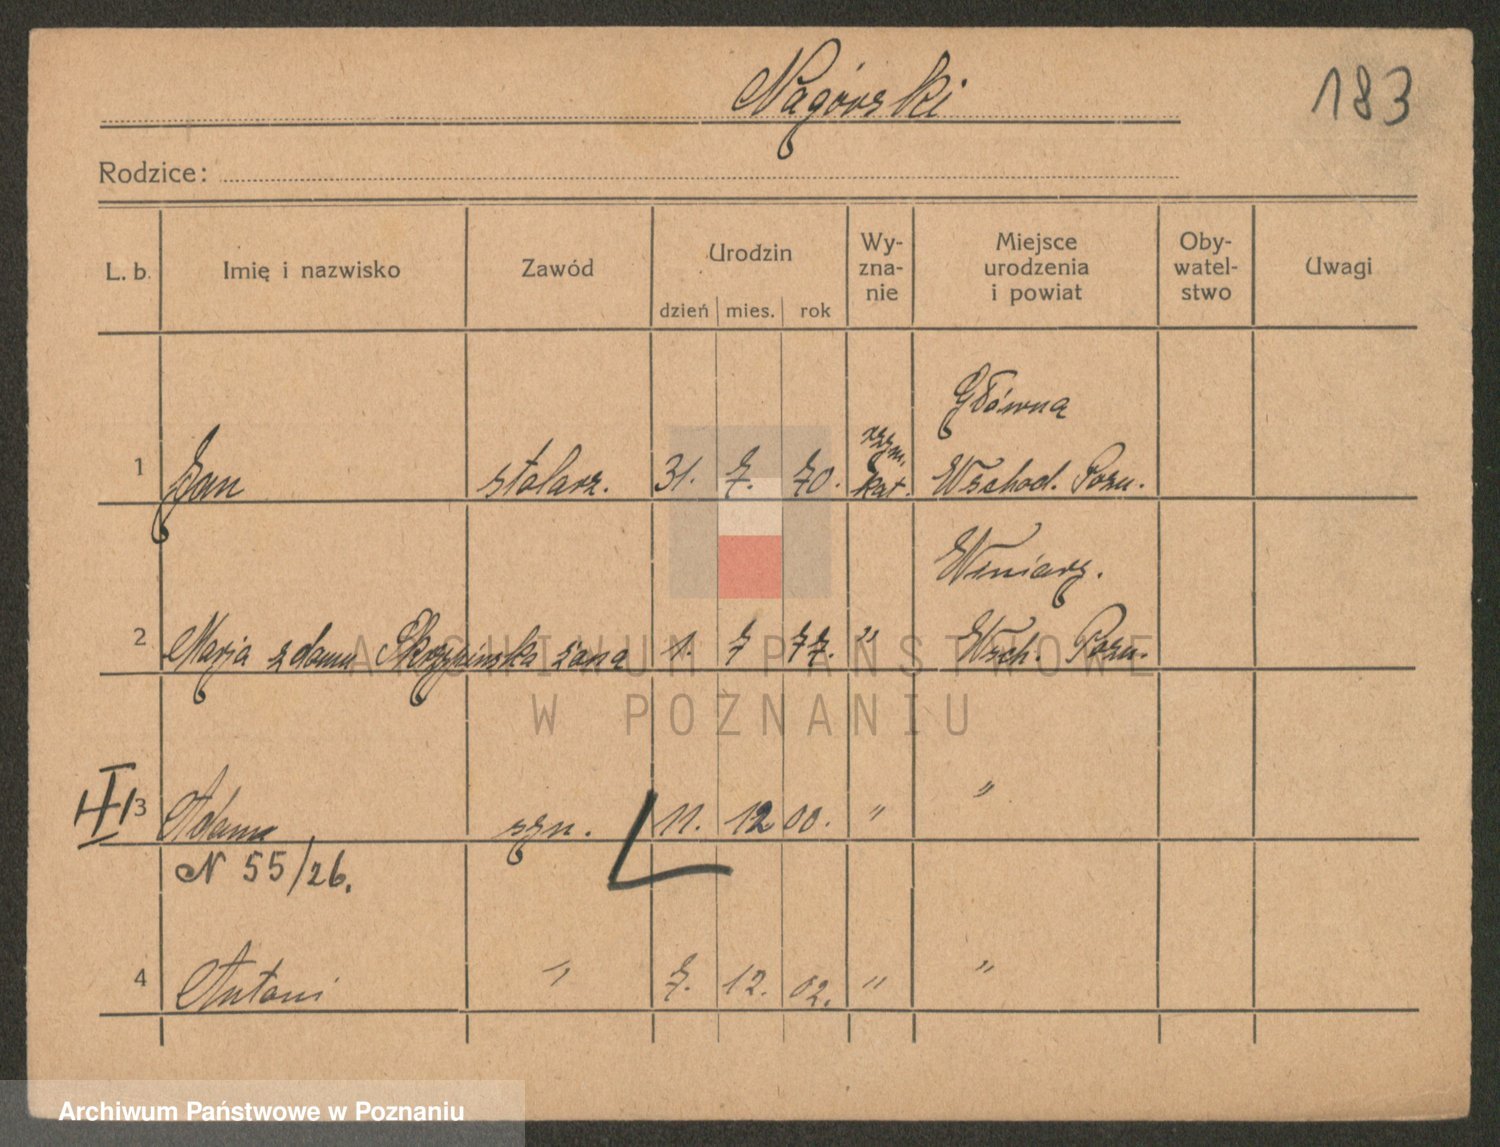 Nagórski
183
Rodzice:
L. b. Imię i nazwisko Zawód Urodzin dzień mies. rok Wy-zna-nie Miejsce urodzenia i powiat Oby-watel-stwo Uwagi
Główna
1 Jan stolarz. 31. 7. 70. rzym. kat. Wschod. Pozn.
Winiary.
2 Marja z domu Skrzypińska żona 1. 7 77. " Wsch. Pozn.
3 Adam syn. 11. 12 00. " "
N 55/26.
4 Antoni " 7. 12. 02. " "
ARCHIWUM PAŃSTWOWE
W POZNANIU
Archiwum Państwowe w Poznaniu